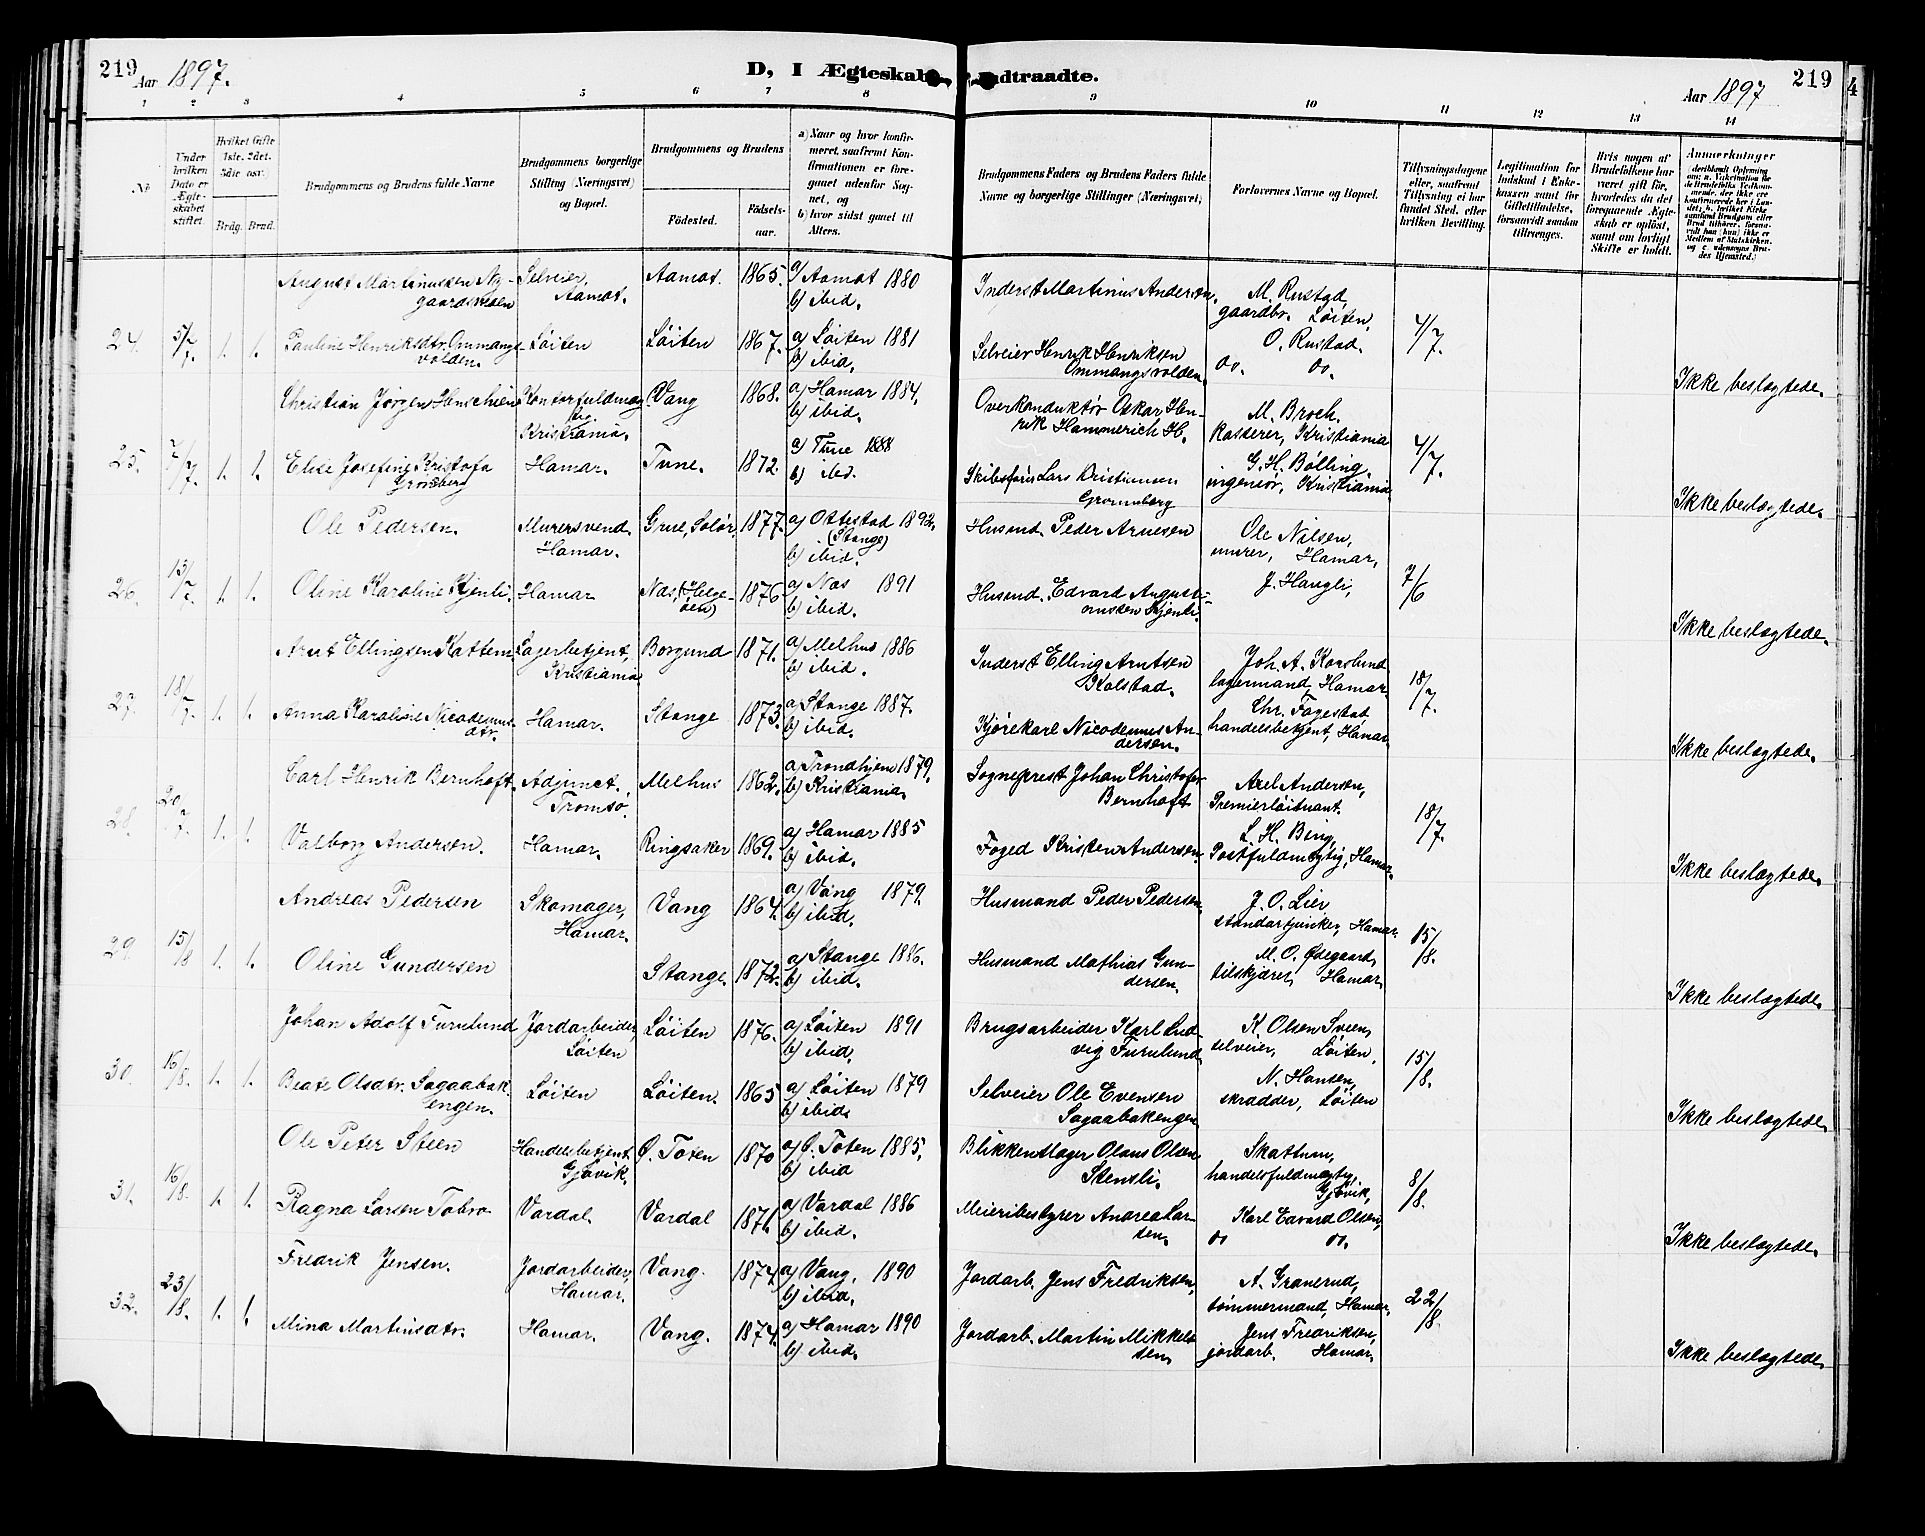 219
Aar 1897.
D, I Ægteskab indtraadte.
Aar 1897
219
4
1 2 3 4 5 6 7 8 9 10 11 12 13 14
No
Under
hvilken
Dato er
Ægte-
skabet
stiftet.
Hvilket Gifte
1ste, 2det,
3die osv.)
Brdg. Brud.
Brudgommens og Brudens fulde Navne
Brudgommens borgerlige
Stilling (Næringsvei)
og Bopæl.
Brudgommens og Brudens
Födested.
Födsels-
aar.
a) Naar og hvor konfir-
meret, saafremt Kon-
firmationen er fore-
gaaet udenfor Sog-
net, og
b) hvor sidst gaaet til
Alters.
Brudgommens Faders og Brudens Faders fulde
Navne og borgerlige Stillinger (Næringsvei)
Forlovernes Navne og Bopæl.
Tillysningsdagene
eller, saafremt
Tillysning ei har
fundet Sted, efter
hvilken Bevilling.
Legitimation for
Indskud i Enke-
kassen samt for
Giftetilladelse,
forsaavidt saadan
tiltrænges.
Hvis nogen af
Brudefolkene har
været gift för,
hvorledes da det
foregaaende Ægte-
skab er oplöst,
samt om lovligt
Skifte er holdt.
Anmærkninger
24. 5/7. 1. 1.
August Martinussen Ny-
gaardsmoen
Selveier,
Aamot.
Aamot. 1865.
a) Aamot 1880
b) ibid.
Inderst Martinus Andersen.
M. Rustad,
gaardbr. Löiten,
4/7.
Pauline Henriksdtr. Ommangs-
volden.
Löiten
Löiten 1867.
a) Löiten 1881
b) ibid.
Selveier Henrik Henriksen
Ommangsvolden.
O. Rustad.
do. do.
Ikke beslægtede.
25. 7/7. 1. 1.
Christian Jörgen Henschien
Kontorfuldmæg-
tig
Kristiania.
Vang 1868.
a) Hamar 1884.
b) ibid.
Overkonduktör Oskar Hen-
rik Hammerich H.
M. Broch.
Kasserer, Kristiania
4/7.
Elise Josefine Kristofa
Hamar.
Tune. 1872.
a) Tune 1888
b) ibd.
Skibsförer Lars Kristiansen
G. H. Bölling,
ingeniör, Kristiania
Ikke beslægtede.
26. 13/7. 1. 1.
Ole Pedersen.
Murersvend.
Hamar.
Grue, Solör, 1877.
a) Ottestad 1892.
(Stange)
b) ibid.
Husmd. Peder Arnesen
Ole Nilsen,
murer, Hamar,
7/6
Oline Karoline Kjenli.
Hamar
Næs, (Helge-
öen) 1876.
a) Næs 1891
b) ibid.
Husmd. Edvard August-
inussen Kjenli.
J. Haugli,
Ikke beslægtede.
27. 18/7. 1. 1.
Arnt Ellingsen Kattem.
Lagerbetjent,
Kristiania
Borgund 1871.
a) Melhus 1886
b) ibid.
Inderst Elling Arntsen
Kolstad.
Joh. A. Korslund
lagermand, Hamar.
18/7.
Anna Karoline Nicodemus-
dtr.
Hamar.
Stange 1873.
a) Stange 1887.
b) ibid.
Kjörekarl Nicodemus An-
dersen.
Chr. Fagestad
handelsbetjent, Hamar
Ikke beslægtede.
28. 20/7. 1. 1.
Carl Henrik Bernhoft.
Adjunct,
Tromsö.
Melhus 1862.
a) Trondhjem 1879,
b) Kristiania.
Sogneprest Johan Christofer
Bernhoft
Axel Andersen,
Premierlöitnant.
18/7.
Valborg Andersen.
Hamar.
Ringsaker 1869.
a) Hamar 1885
b) ibid.
Foged Kristen Andersen.
L. H. Bing,
Postfuldmægtig, Hamar.
Ikke beslægtede.
29. 15/8 1. 1.
Andreas Pedersen
Skomager,
Hamar.
Vang 1864.
a) Vang 1879.
b) ibid.
Husmand Peder Pedersen.
J. O. Lier
standartjunker, Hamar.
15/8.
Oline Gundersen
Stange. 1872.
a) Stange 1886.
b) ibid.
Husmand Mathias Gun-
dersen.
M. O. Ödegaard,
tilskjærer, Hamar.
Ikke beslægtede.
30. 16/8. 1. 1.
Johan Adolf Furulund
Jordarbeider,
Löiten
Löiten 1876.
a) Löiten 1891
b) ibid.
Brugsarbeider Karl Lud-
vig Furulund.
K. Olsen Sveen,
selveier, Löiten,
15/8.
Beate Olsdtr. Sagaabak-
engen.
Löiten
Löiten. 1865
a) Löiten 1879
b) ibid.
Selveier Ole Evensen
Sagaabakengen
N. Hansen,
skrædder, Löiten
Ikke beslægtede.
31. 16/8. 1. 1.
Ole Peter Steen
Handelsbetjent
Gjövik.
Ö. Toten 1870
a) Ö. Toten 1885.
b) ibid
Blikkenslager Olaus Olsen
Stensli.
Skattum,
handelsfuldmægtig,
Gjövik,
8/8.
Ragna Larsen Tobro
Vardal.
Vardal 1871.
a) Vardal 1886
b) ibid.
Meieribestyrer Andrea Lar-
sen.
Karl Edvard Olsen,
do do.
Ikke beslægtede.
32. 23/8. 1. 1.
Fredrik Jensen.
Jordarbeider,
Hamar.
Vang. 1874.
a) Vang. 1890
b) ibid.
Jordarb. Jens Fredriksen,
A. Granerud,
tömmermand, Hamar.
22/8.
Mina Martinsdtr.
Hamar.
Vang. 1874.
a) Hamar 1890
b) ibid.
Jordarb. Martin Mikkel-
sen.
Jens Fredriksen,
jordarb. Hamar.
Ikke beslægtede